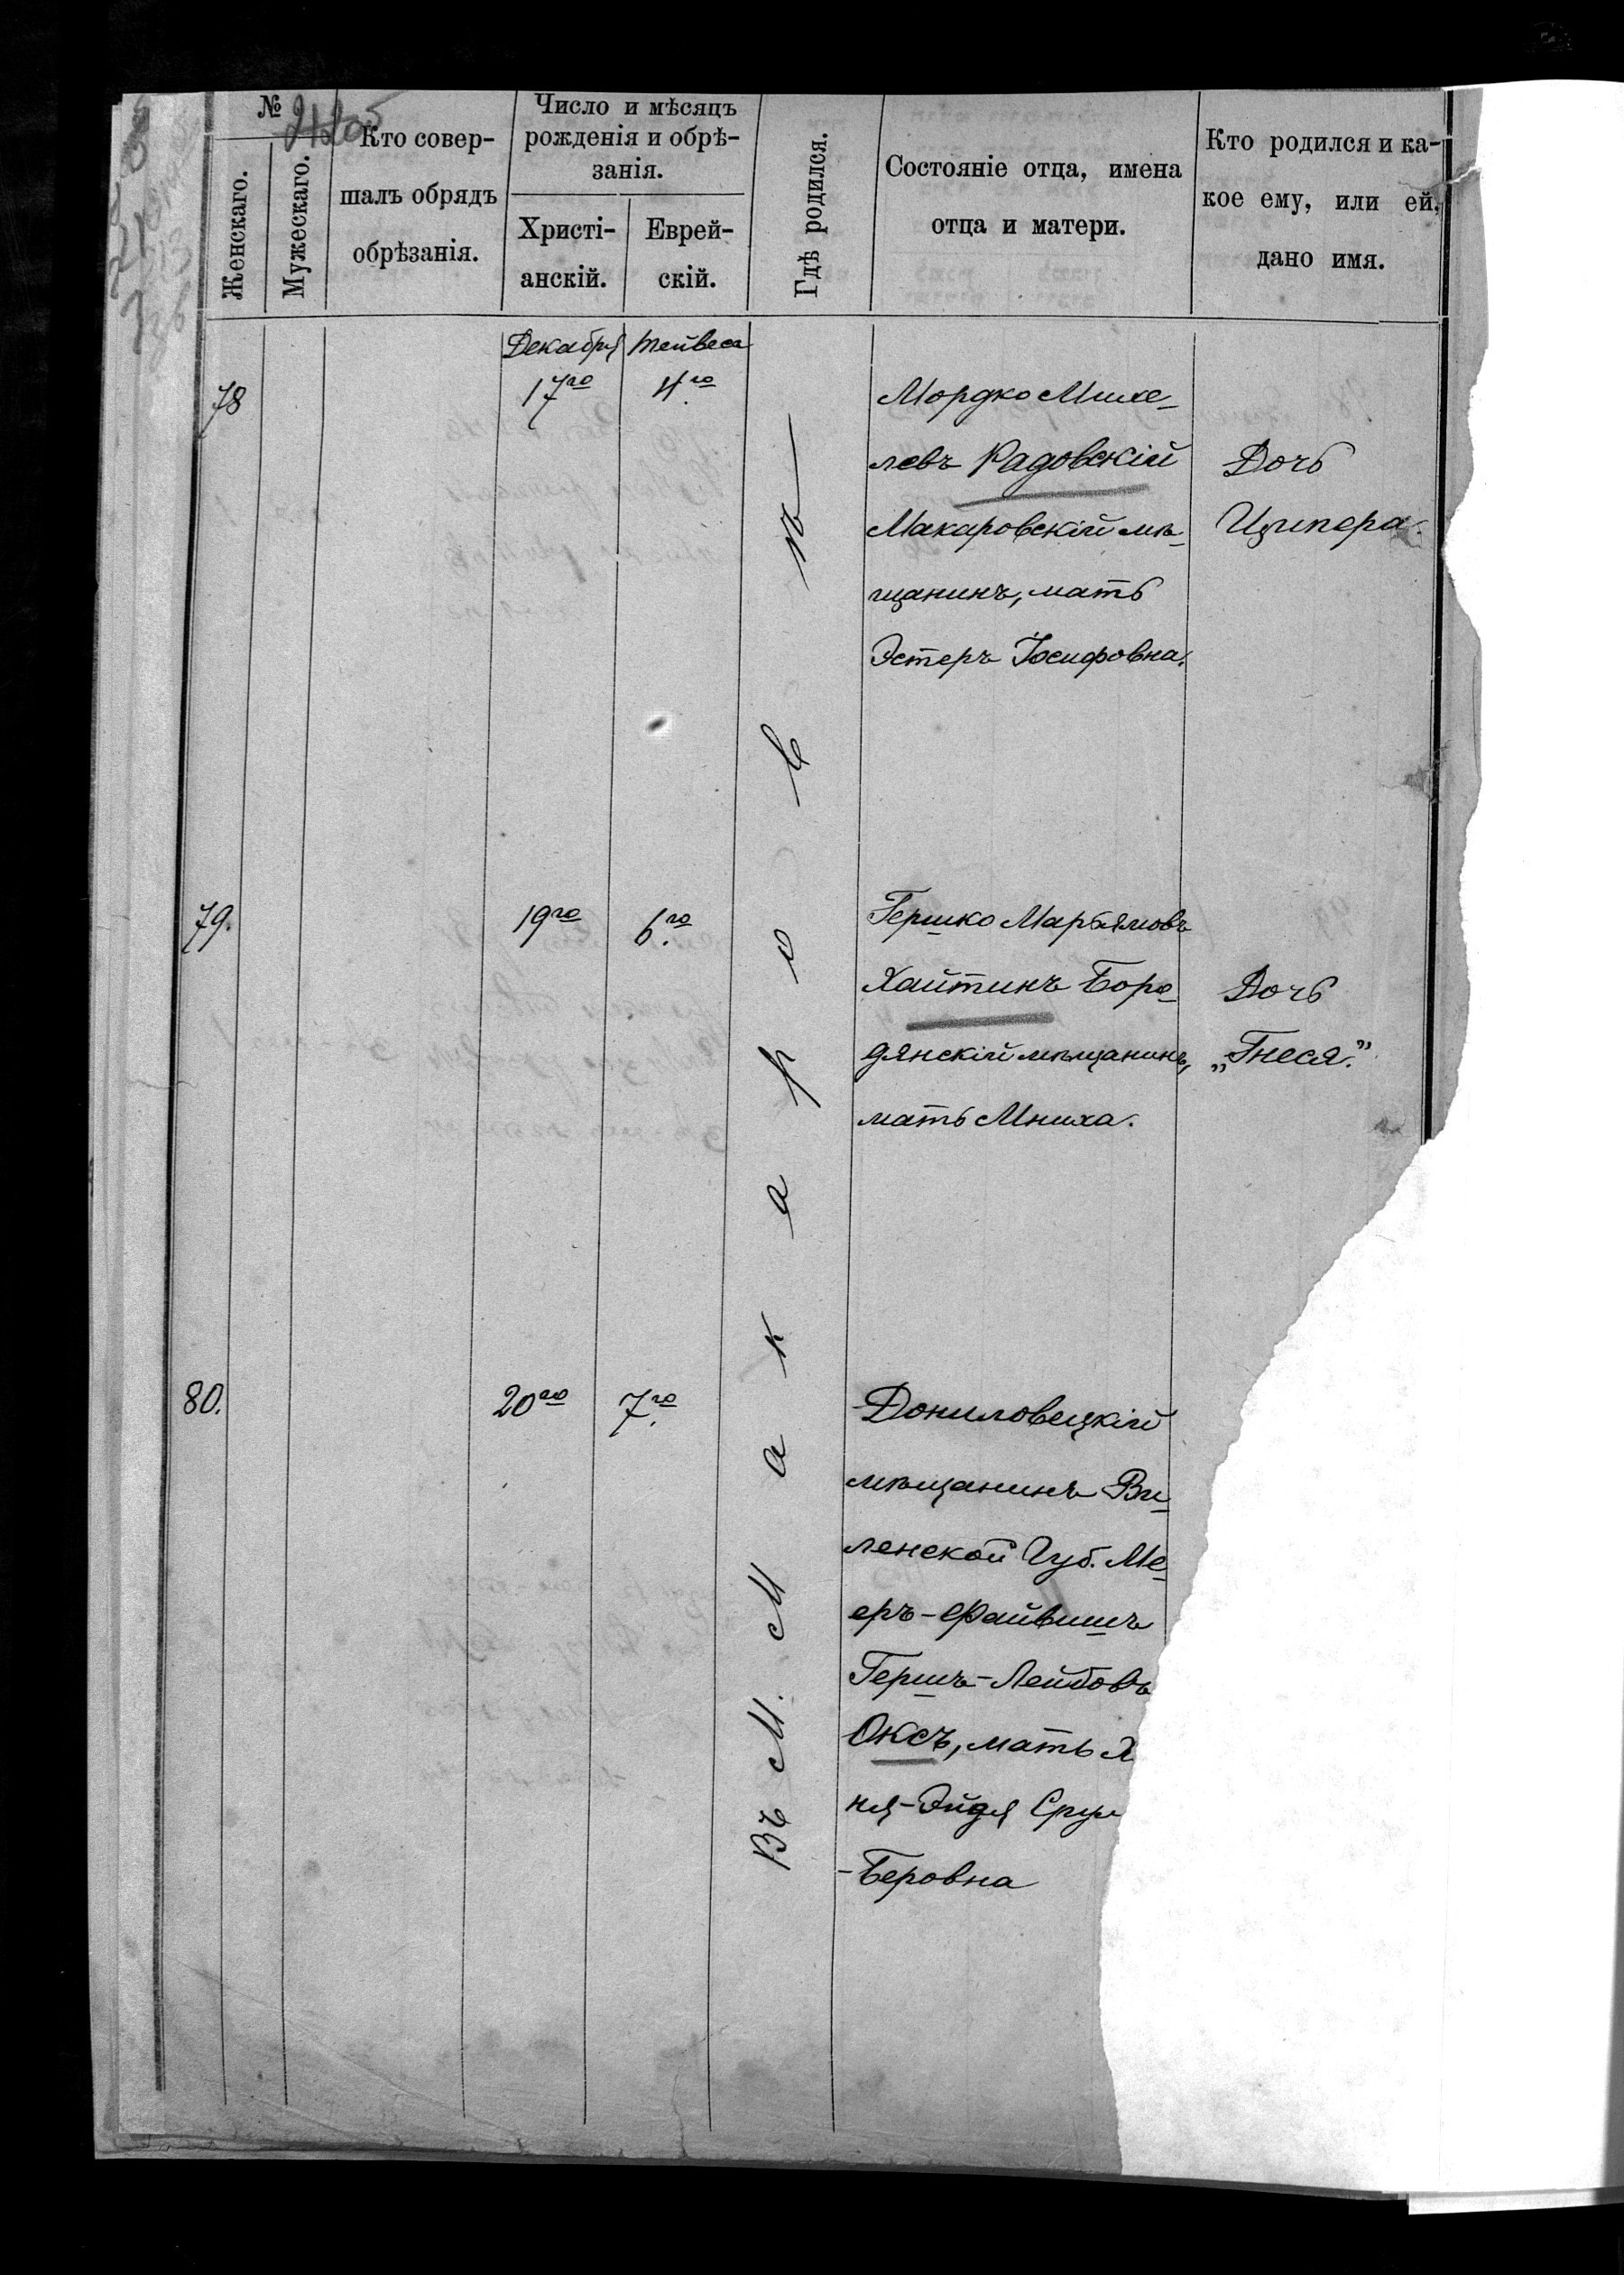 №
Женскаго.
Мужескаго.
Кто совер-
шалъ обрядъ
обрѣзанія.
Число и мѣсяцъ
рожденія и обрѣ-
занія.
Христі-
анскій.
Еврей-
скій.
Гдѣ родился.
Состояніе отца, имена
отца и матери.
Кто родился и ка-
кое ему, или ей,
дано имя.
Декабря Тейвеса
78 17го 4го
Мордко Михе-
левъ Радовскій
Макаровскій мѣ-
щанинъ, мать
Эстеръ Іосифовна.
Дочь
Ципера.
79. 19го 6го
Гершко
Хайтинъ Боро-
дянскій мѣщанинъ,
мать Мниха.
Дочь
„Гнеся.”
80. 20го 7го
Дониловецкій
мѣщанинъ Ви-
ленской Губ. Ме-
еръ-Файвишъ
Гершъ-Лейбовъ
Оксъ, мать
ня-Эйдя Срул
-Беровна
Въ М. Макаровѣ